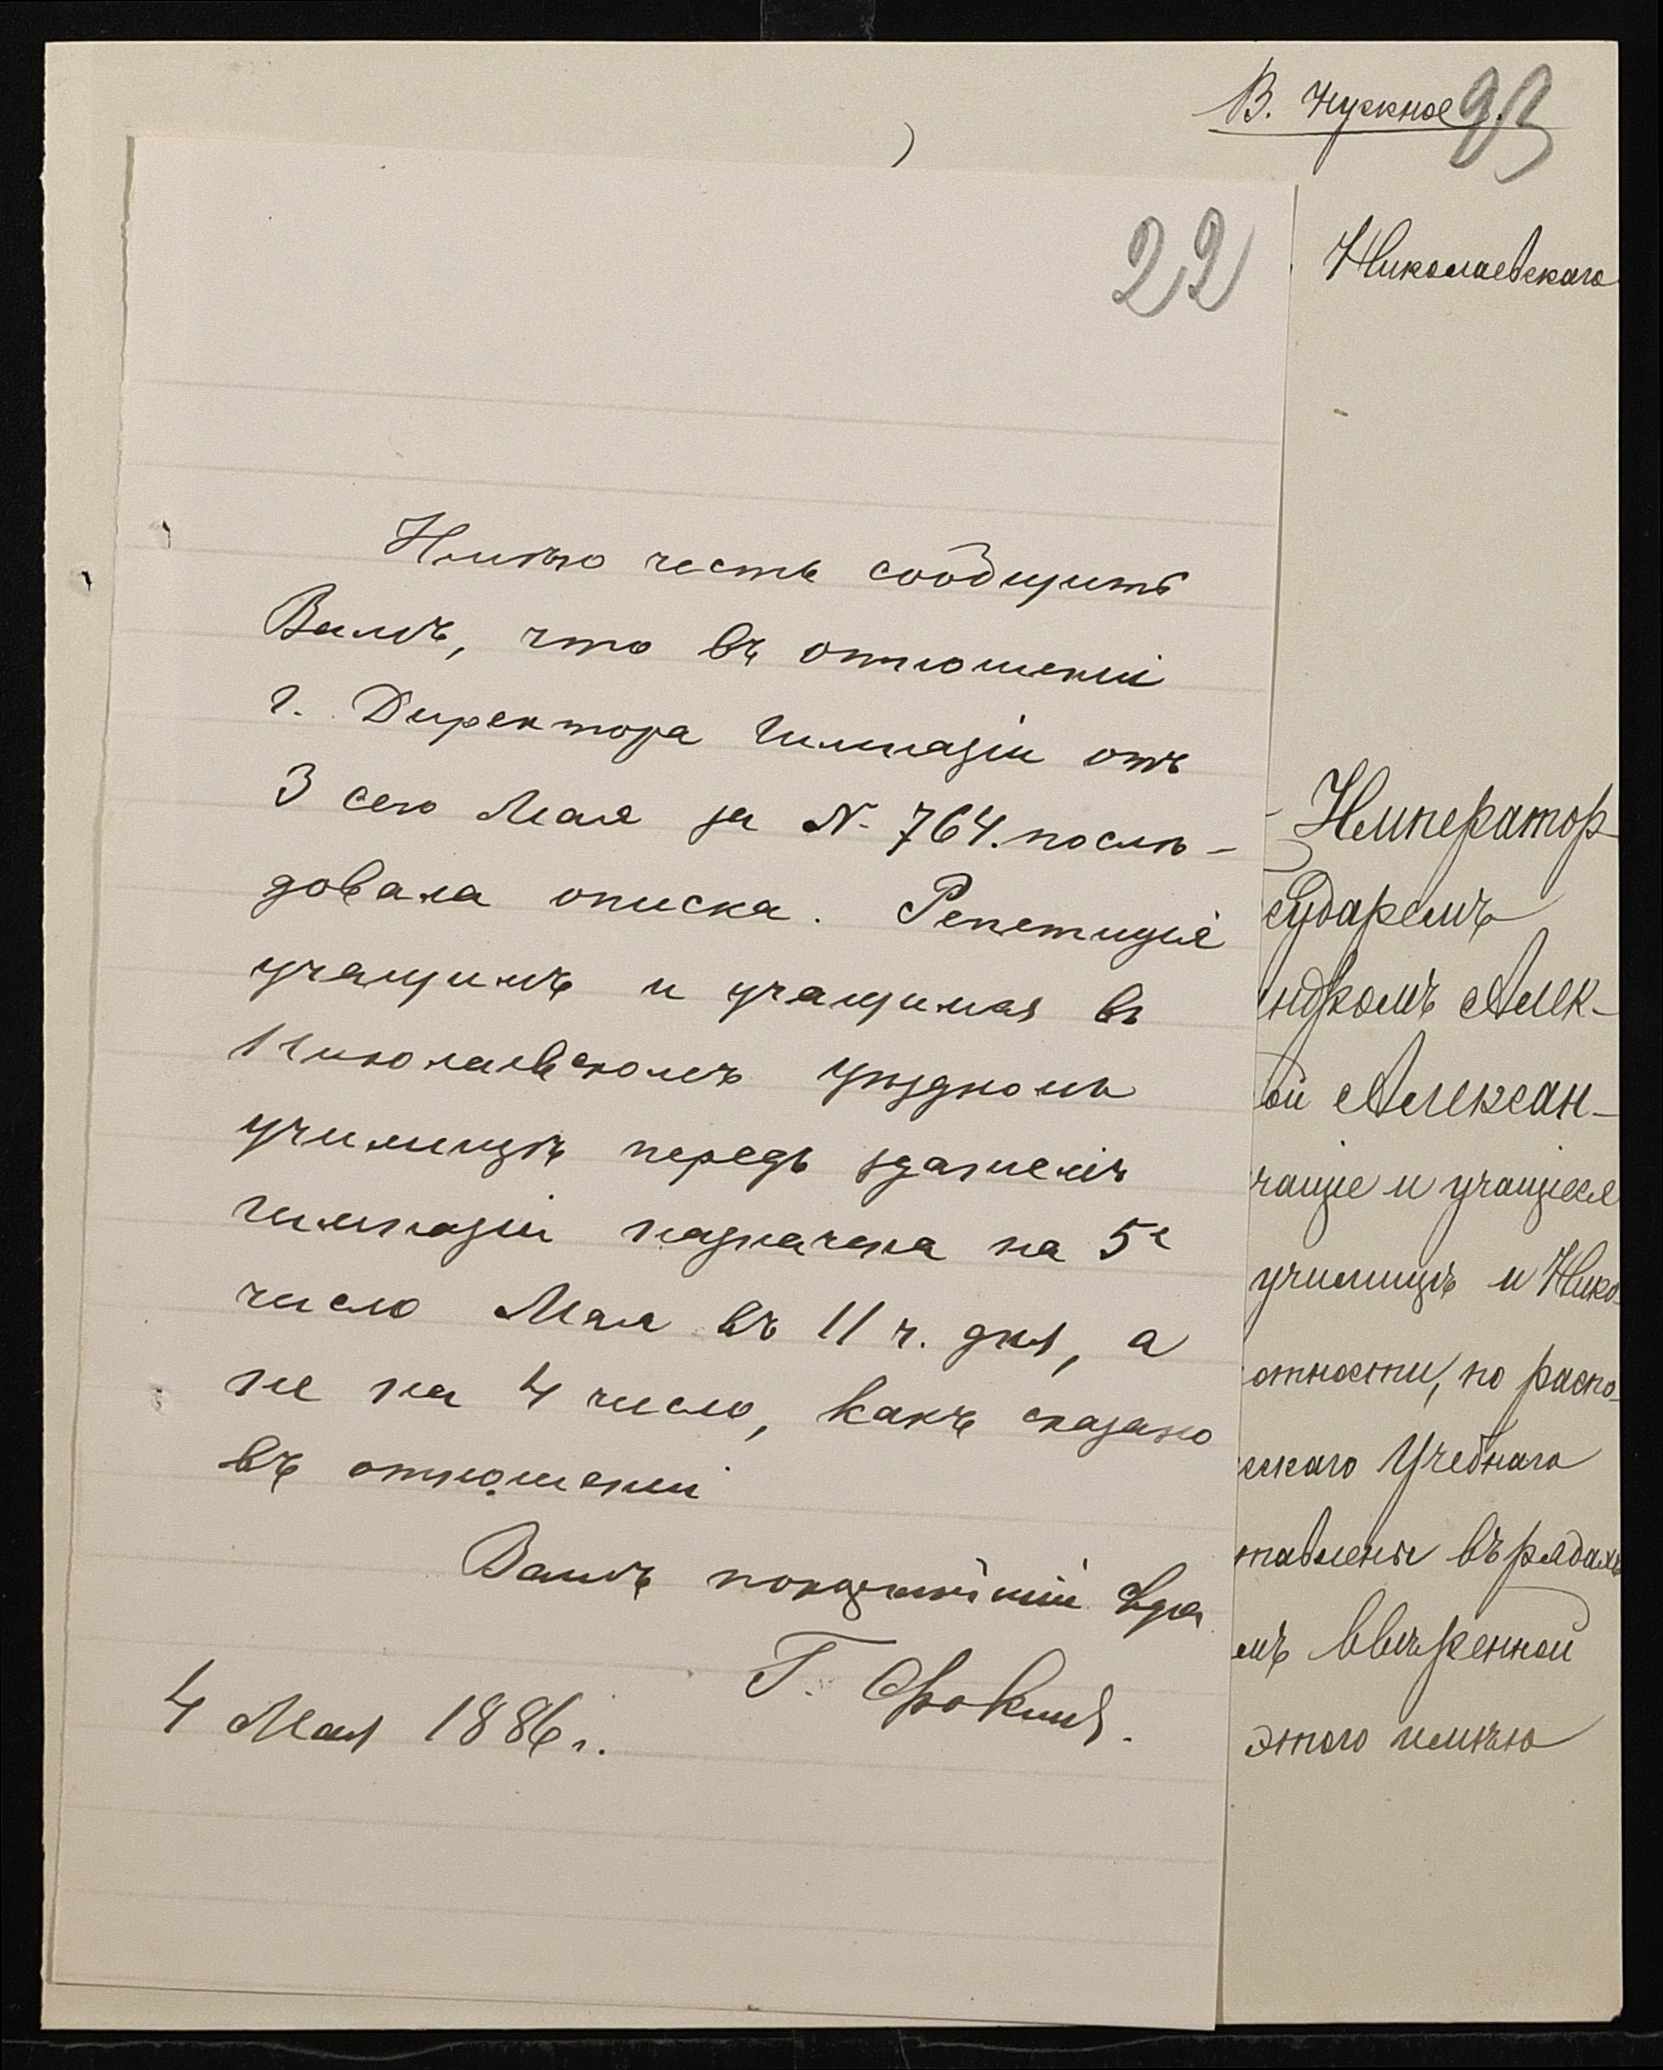 В. Нужное.
23
22
Николаевскаго
Имѣю честь сообщить
Вамъ, что въ отношеніи
г. Директора Гимназіи отъ
3 сего Мая за №. 764. послѣ-
довала описка. Репетиція
учащимъ и учащимся въ
Николаевскомъ уѣздномъ
училищѣ передъ зданіемъ
гимназіи назначена на 5е
число Мая въ 11 ч. дня, а
не на 4 число, какъ сказано
въ отношеніи
Вашъ покорнѣйшій
Г. Фокинъ.
4 Мая 1886 г.
Император-
сударемъ
Алек-
ой Алексан-
чащіе и учащіеся
училищъ и Нико-
стности, по распо-
скаго Учебнаго
тавлены въ рядахъ
мъ ввѣренной
этого имѣю